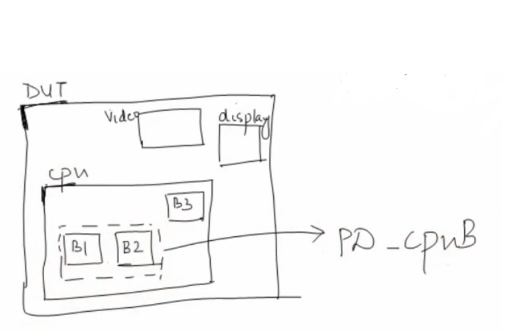 DUT
Video
display
cpu
B3
B1
B2
PD_cpuB